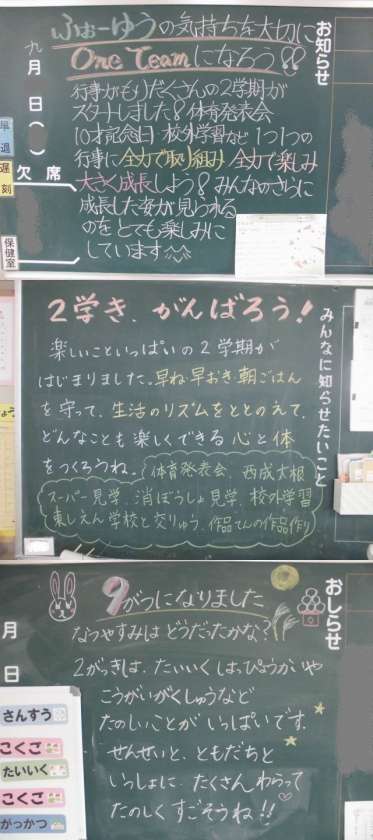 お知らせ
ふぉーゆうの気持ちを大切に
One Teamになろう!!
行事がもりだくさんの2学期が
スタートしました!体育発表会
校外学習など1つ1つの
行事に全力で取り組み全力で楽しみ
大きく成長しよう!みんなのさらに
成長した姿が見られる
のをとても楽しみに
しています
九月
日
( )
欠席
早退
遅刻
保健室
みんなに知らせたいこと
2学き、がんばろう!
楽しいこといっぱいの2学期が
はじまりました。早ね・早おき・朝ごはん
を守って、生活のリズムをととのえて、
どんなことも楽しくできる心と体
をつくろうね。
体育発表会、西成大根
スーパー見学、消ぼうしょ見学、校外学習
東しえん学校と交りゅう、作品てんの作品作り
おしらせ
9がつになりました
なつやすみはどうだったかな?
2がっきは、たいいくはっぴょうかいや
こうがいがくしゅうなど
たのしいことがいっぱいです。
せんせいと、ともだちと
いっしょに、たくさんわらって
たのしくすごそうね!!
月
日
さんすう
こくご
たいいく
こくご
がっかつ